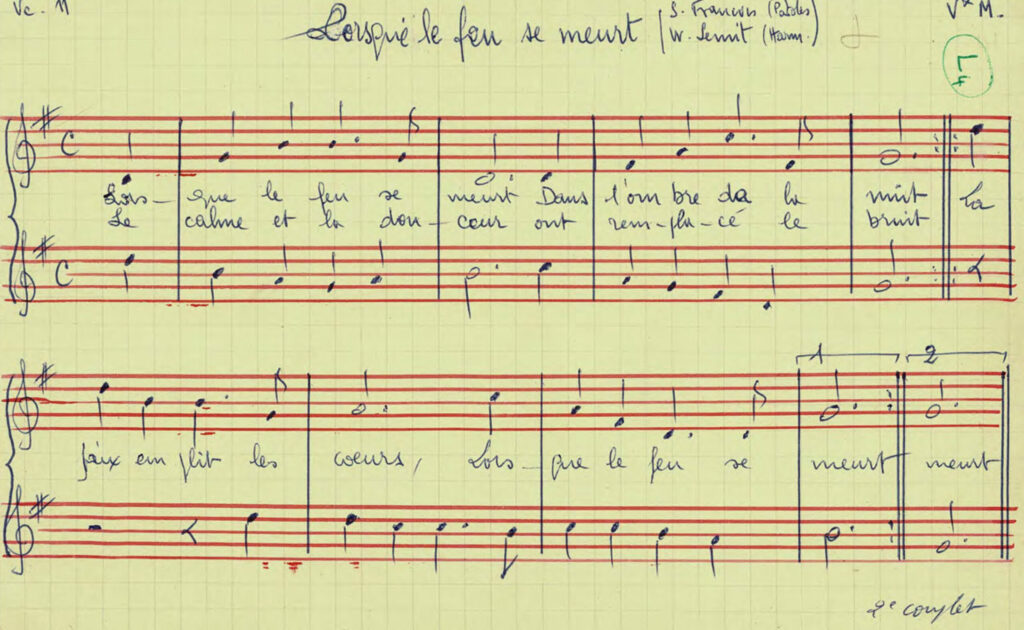 Vc. 11
Lorsque le feu se meurt
S. François (Paroles)
W. Lemit (Harm.)
V* M.
L4
Lors-que le feu se meurt Dans l'ombre da la nuit La
Le calme et la dou-ceur ont rem-pla-cé le bruit
paix emplit les coeurs, Lors-que le feu se meurt meurt
1 2
2e couplet